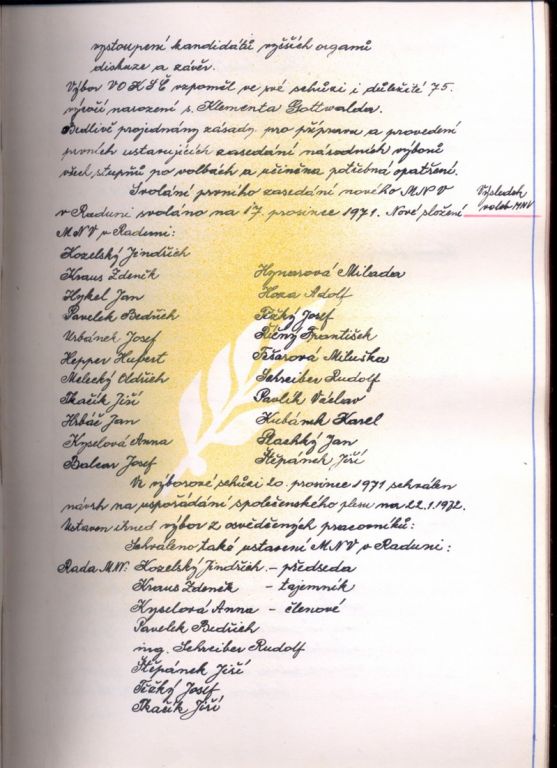 vystoupení kandidátů vyšších orgánů
diskuze a závěr.
Výbor VO KSČ vzpoměl ve své schůzi i důležité 75.
výročí narození s. Klementa Gottwalda.
Bedlivě projednány zásady pro přípravu a provedení
prvních ustavujících zasedání národních výborů
všech stupňů po volbách a učiněna potřebná opatření.
Svolání prvního zasedání nového MNV
Výsledek
voleb MNV
v Raduni svoláno na 17. prosince 1971. Nové složení
MNV v Raduni:
Kozelský Jindřich
Kraus Zdeněk Hynarová Milada
Hykel Jan Hoza Adolf
Pavelek Bedřich Těžký Josef
Urbánek Josef Říčný František
Hepper Hubert Tešarová Miluška
Melecký Oldřich Schreiber Rudolf
Tkačík Jiří Pavlík Václav
Hrbáč Jan Kubánek Karel
Kyselová Anna Plachký Jan
Balcar Josef Štěpánek Jiří
Ve výborové schůzi 20. prosince 1971 schválen
návrh na uspořádání společenského plesu na 22.1.1972.
Ustaven ihned výbor z osvědčených pracovníků:
Schváleno také ustavení MNV v Raduni:
Rada MNV: Kozelský Jindřich – předseda
Kraus Zdeněk – tajemník
Kyselová Anna – členové
Pavelek Bedřich
ing. Schreiber Rudolf
Štěpánek Jiří
Těžký Josef
Tkačík Jiří